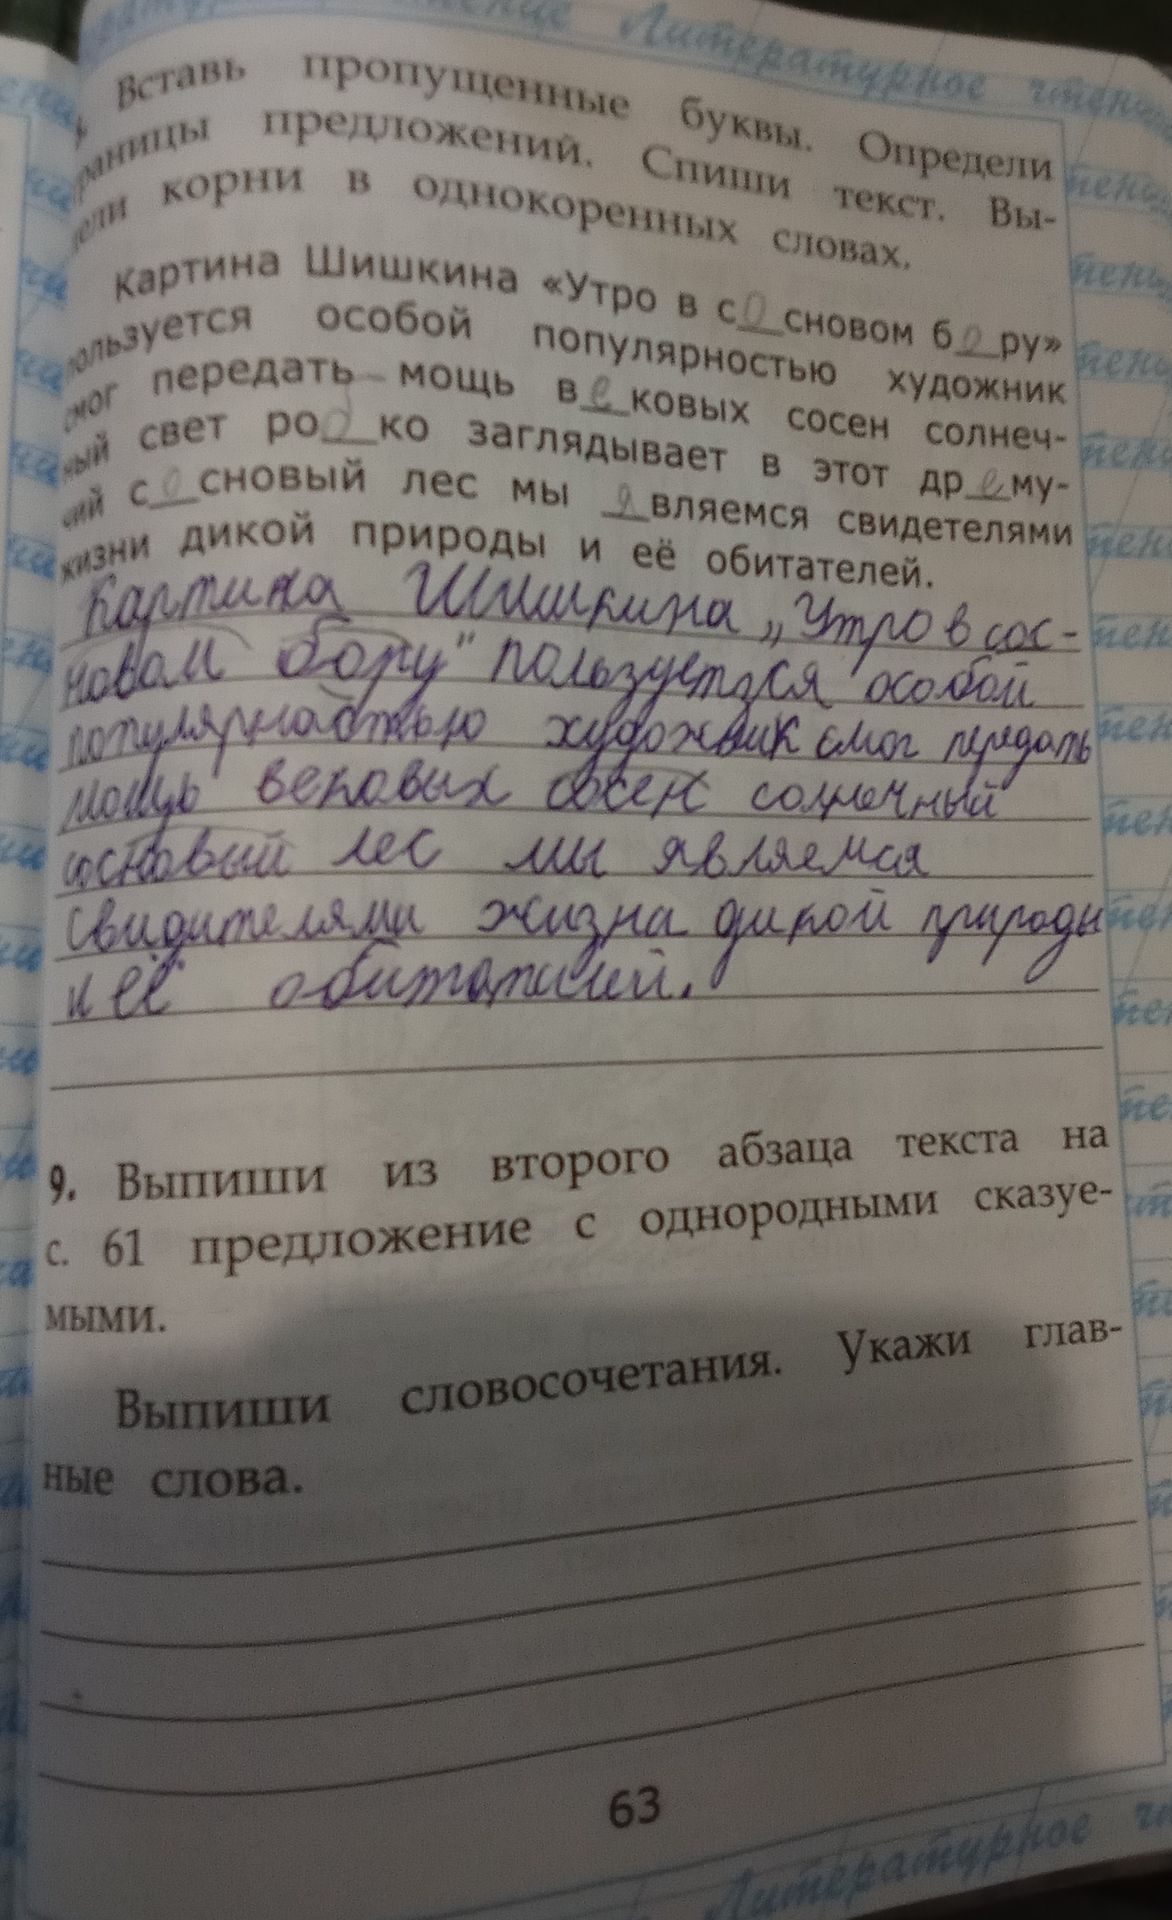 Литературное чтение
Вставь пропущенные буквы. Определи
границы предложений. Спиши текст. Вы-
дели корни в однокоренных словах.
Картина Шишкина «Утро в с_о_сновом б_о_ру»
пользуется особой популярностью художник
смог передать мощь в_е_ковых сосен солнеч-
ный свет ро_д_ко заглядывает в этот др_е_му-
чий с_о_сновый лес мы _я_вляемся свидетелями
жизни дикой природы и её обитателей.
Картина Шишкина „Утро в сос-
новом бору" пользуется особой
популярностью художник смог передать
мощь вековых сосен солнечный
сосновый лес мы являемся
свидителями жизна дикой природы
и её обитателей.
9. Выпиши из второго абзаца текста на
с. 61 предложение с однородными сказуе-
мыми.
Выпиши словосочетания. Укажи глав-
ные слова.
63
Литературное